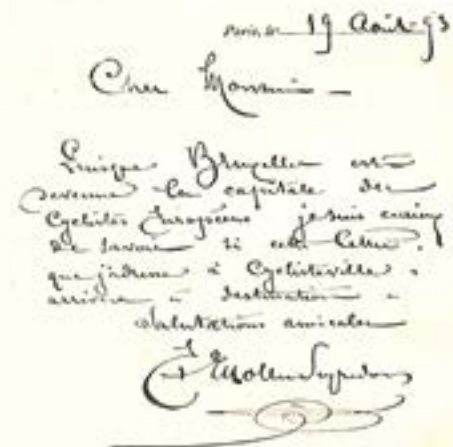 Paris, le 19 Août 93
Cher Monsieur —
Puisque Bruxelles est
devenue la capitale des
Cyclistes Européens je suis curieux
de savoir si cette lettre,
que j'adresse à Cyclisteville,
arrivera à destination —
Salutations amicales